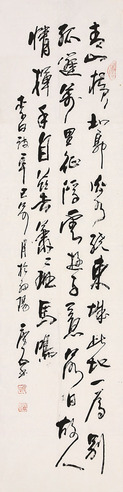 青山橫北郭白水繞東城此地一為別
孤蓬萬里征浮雲遊子意落日故人
情揮手自茲去蕭々班馬鳴
李白詩辛巳 月於 陽